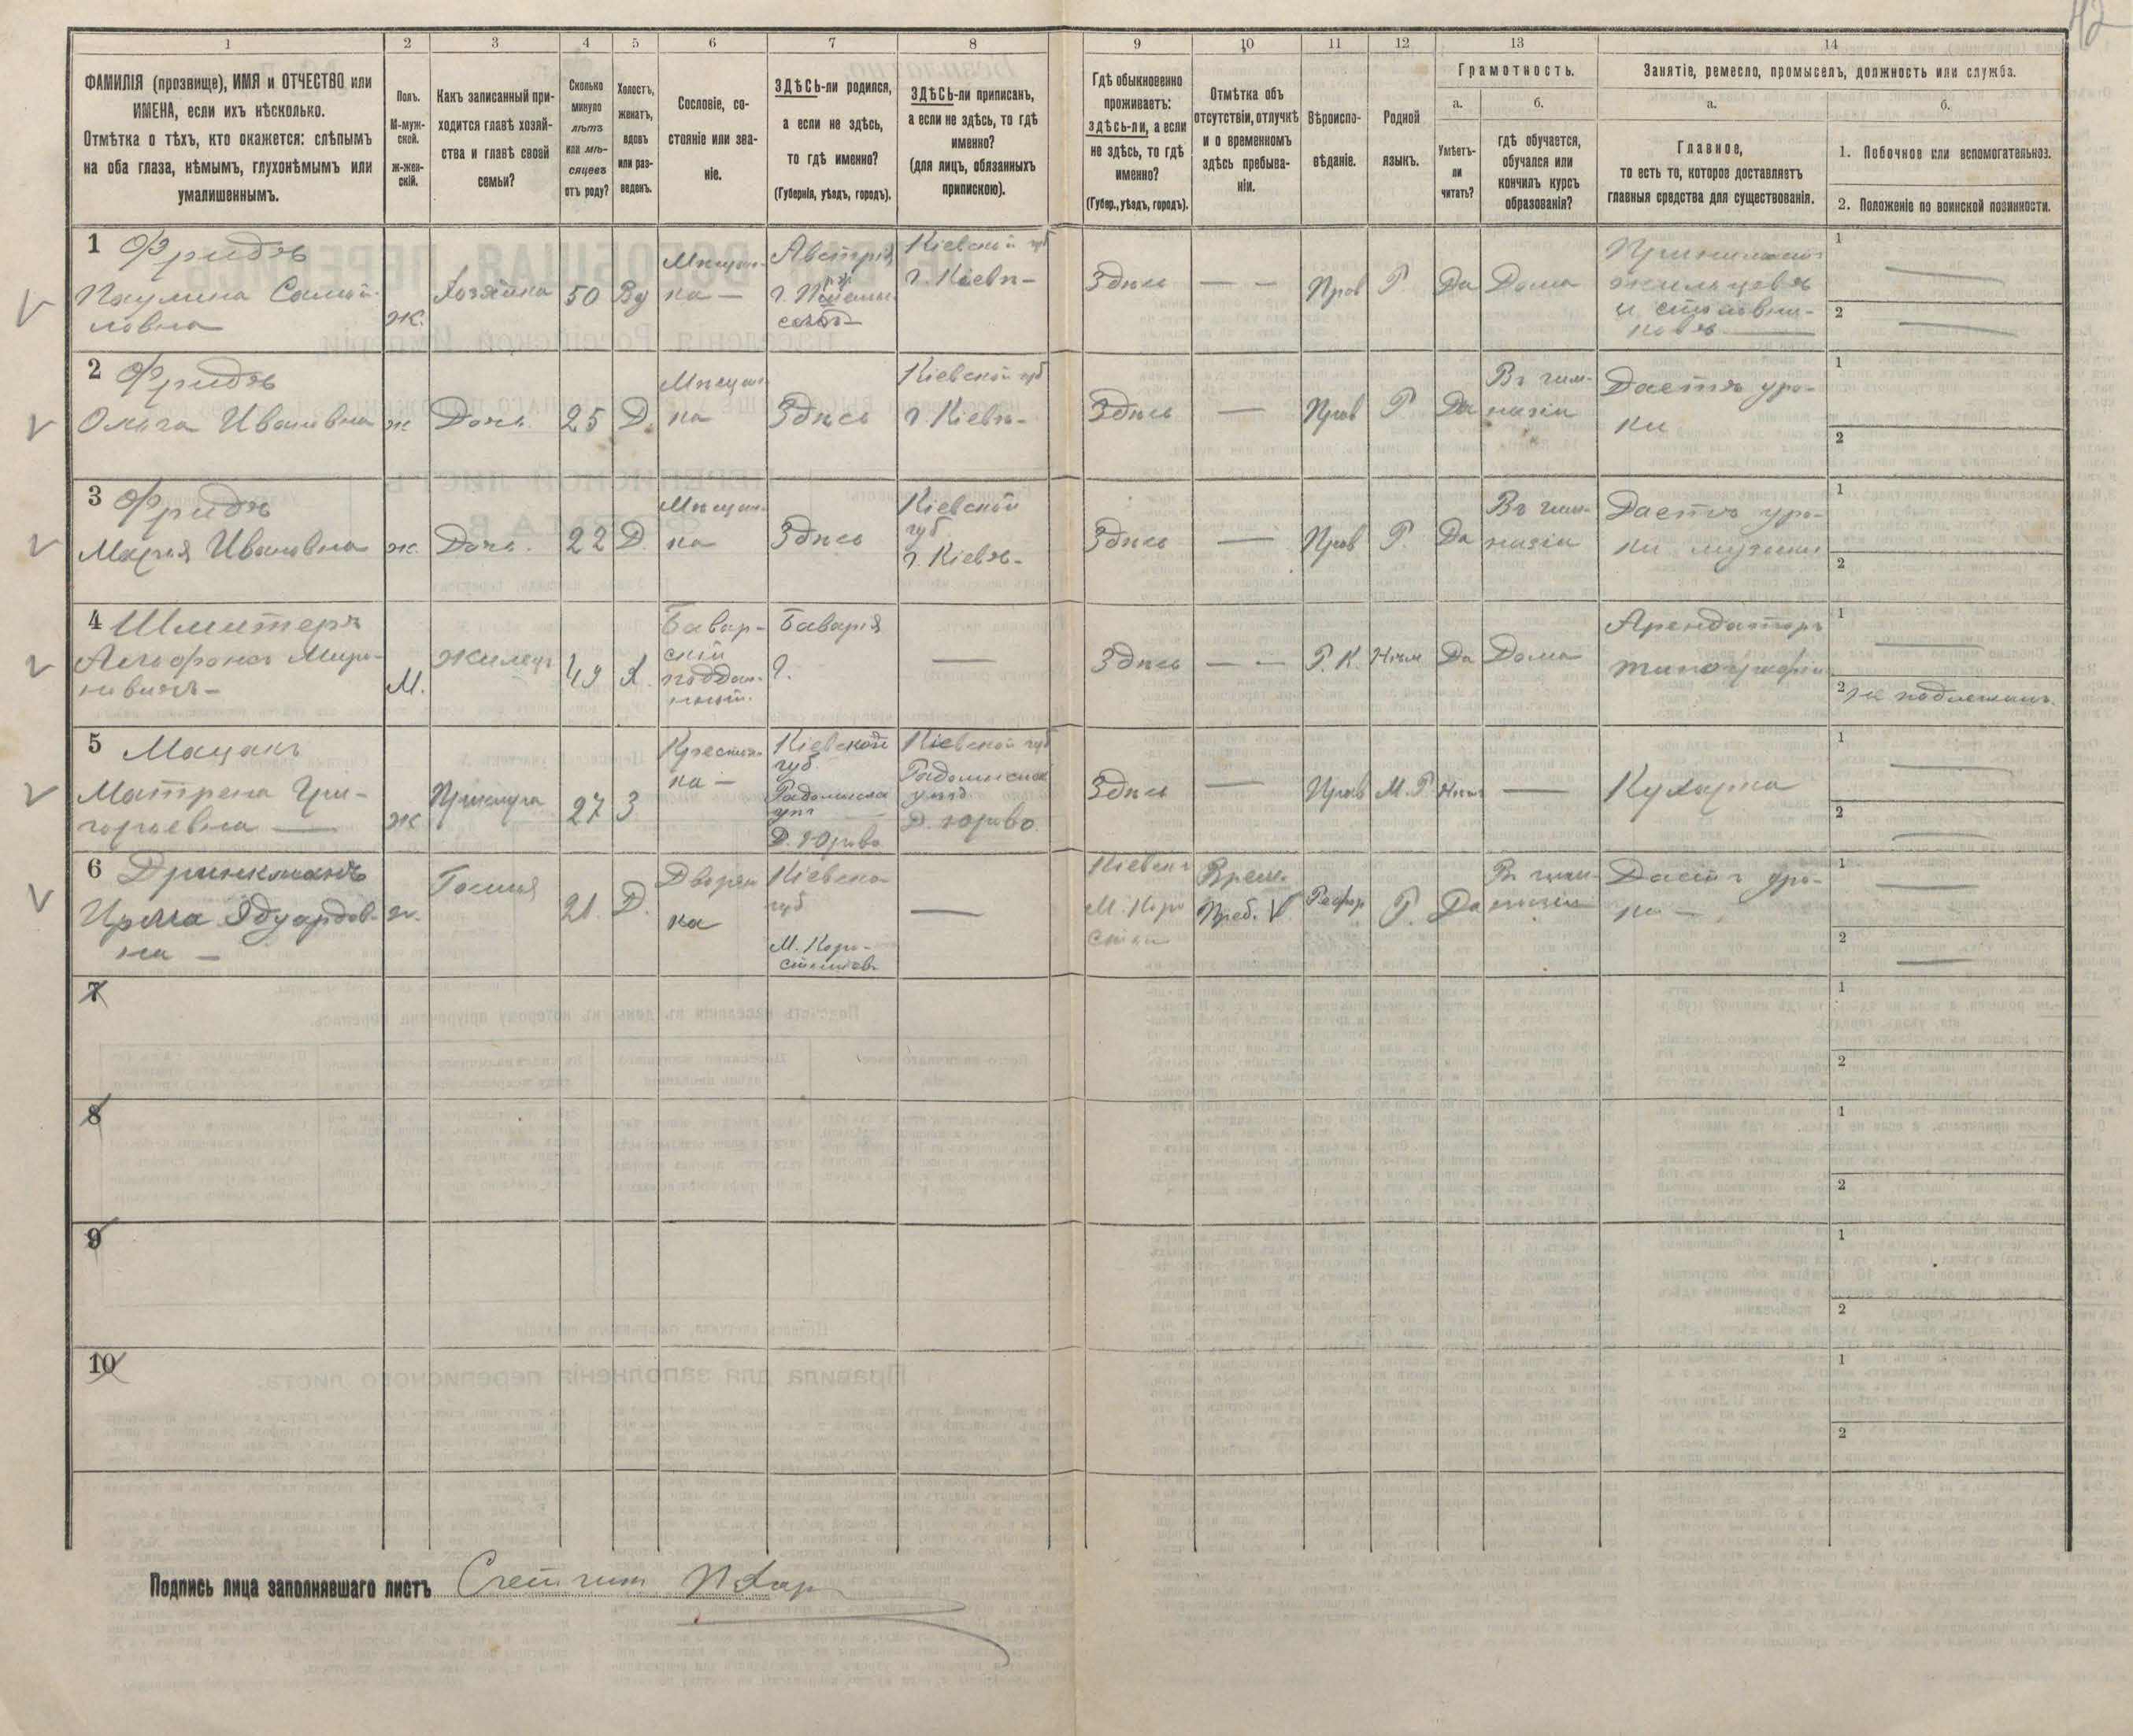 42
1 2 3 4 5 6 7 8 9 10 11 12 13 14
ФАМИЛІЯ (прозвище), ИМЯ и ОТЧЕСТВО или
ИМЕНА, если ихъ нѣсколько.
Отмѣтка о тѣхъ, кто окажется: слѣпымъ
на оба глаза, нѣмымъ, глухонѣмымъ или
умалишеннымъ.
Полъ.
М-муж-
ской.
Ж-жен-
скій.
Какъ записанный при-
ходится главѣ хозяй-
ства и главѣ своей
семьи?
Сколько
минуло
лѣтъ
или мѣ-
сяцевъ
отъ роду?
Холостъ,
женатъ,
вдовъ
или раз-
веденъ.
Сословіе, со-
стояніе или зва-
ніе.
ЗДѢСЬ-ли родился,
а если не здѣсь,
то гдѣ именно?
(Губернія, уѣздъ, городъ).
ЗДѢСЬ-ли приписанъ,
а если не здѣсь, то гдѣ
именно?
(для лицъ, обязанныхъ
припискою).
Гдѣ обыкновенно
проживаетъ:
здѣсь-ли, а если
не здѣсь, то гдѣ
именно?
(Губер., уѣздъ, городъ).
Отмѣтка объ
отсутствіи, отлучкѣ
и о временномъ
здѣсь пребыва-
ніи.
Вѣроиспо-
вѣданіе.
Родной
языкъ.
Грамотность.
а.
Умѣетъ-
ли
читать?
б.
гдѣ обучается,
обучался или
кончилъ курсъ
образованія?
Занятіе, ремесло, промыселъ, должность или служба.
а.
Главное,
то есть то, которое доставляетъ
главныя средства для существованія.
б.
1. Побочное или вспомогательное.
2. Положеніе по воинской повинности.
1 Фридъ
Паулина Самой-
ловна
ж.
Хозяйка
50
Вд
Мѣщан-
ка —
Австрія
Кіевской губ
г. Кіевъ -
Здѣсь
— —
Прав
Р.
Да
Дома
жильцевъ
и столовни-
ковъ
1
2
2 Фридъ
Ольга Ивановна
ж
Дочь.
25
Д.
Мѣщан-
ка
Здѣсь
Кіевской губ
г. Кіевъ -
Здѣсь
—
Прав
Р
Да
Въ гим-
назіи
Даетъ уро-
ки
1
2
3 Фридъ
Марья Ивановна
ж.
Дочь.
22
Д.
Мѣщан-
ка
Здѣсь
Кіевской
губ
г. Кіевъ -
Здѣсь
—
Прав
Р.
Да
Въ гим-
назіи
Даетъ уро-
ки музыки
1
2
4 Шлитеръ
Альфонсъ Миро-
новичъ -
М.
Жилецъ
49
Х.
Бавар-
скій
поддан-
ный.
Баварія
?.
—
Здѣсь
— —
Р. К.
Нѣм
Да
Дома
Арендаторъ
типографіи
1
2 не подлежитъ.
5 Мацакъ
Матрена Гри-
горьевна —
ж
Прислуга
27
З
Крестьян-
ка —
Кіевской
губ.
Д. Юрово
Кіевской губ
уѣзд
Д. Юрово.
Здѣсь
—
Прав
М. Р
—
Кухарка
1
2
6 Дринкманъ
Ирма Эдуардов-
на —
ж.
Гостья
21.
Д.
Дворян
ка
Кіевска
губ
М. Коро-
стышевъ
—
М. Коро
Времен.
Преб. V
Рефор
Р.
Да
Въ гим-
назіи
Даетъ уро-
ки —
1
2
7
1
2
8
1
2
9
1
2
10
1
2
Подпись лица заполнявшаго листъ Счетчикъ